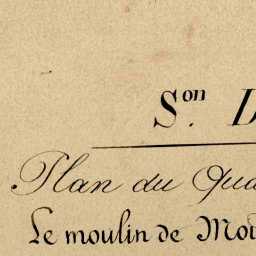 S.on D
Plan du Qua
Le moulin de Mou